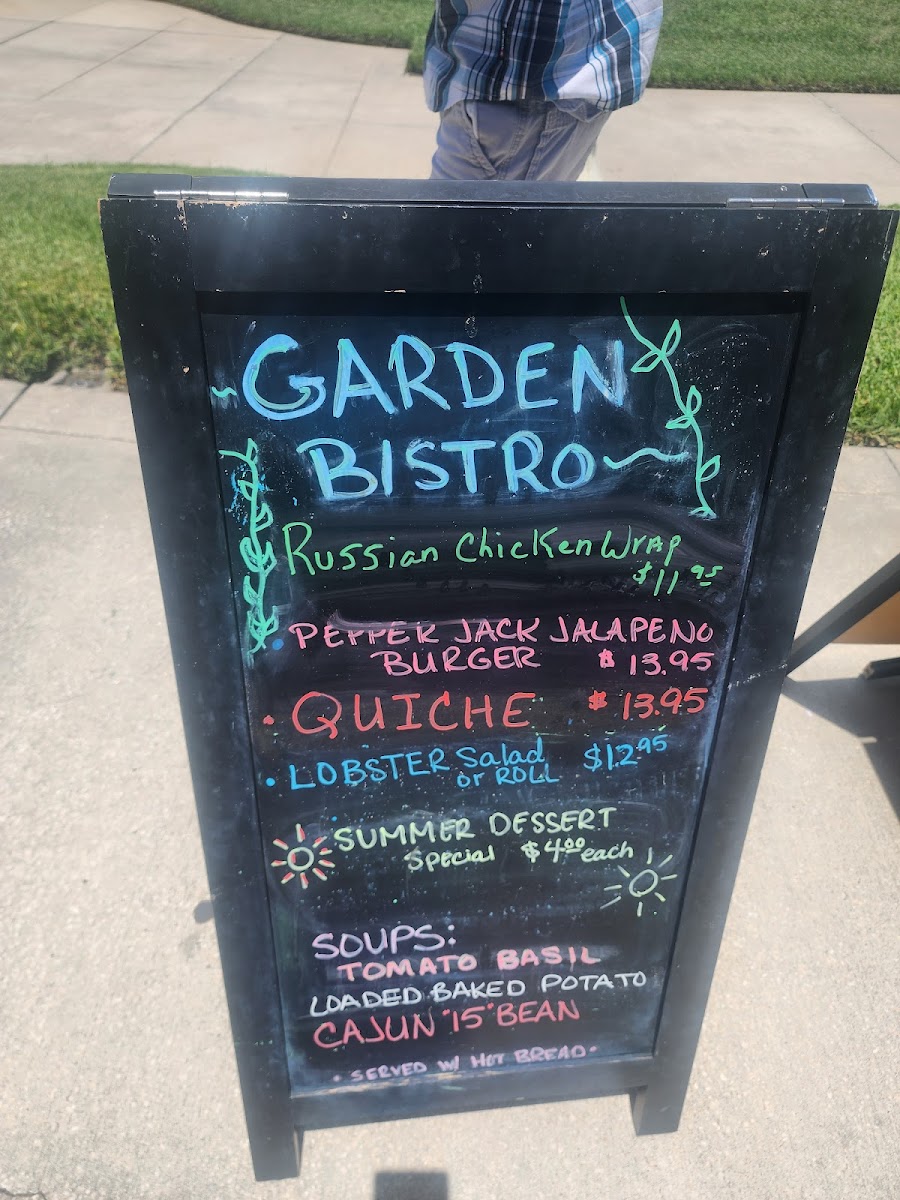 GARDEN
BISTRO
Russian Chicken Wrap
$11.95
• PEPPER JACK JALAPENO
BURGER $13.95
• QUICHE $13.95
• LOBSTER Salad $12.95
or ROLL
SUMMER DESSERT
Special $4.00 each
SOUPS:
TOMATO BASIL
LOADED BAKED POTATO
CAJUN "15" BEAN
• SERVED W/ HOT BREAD •